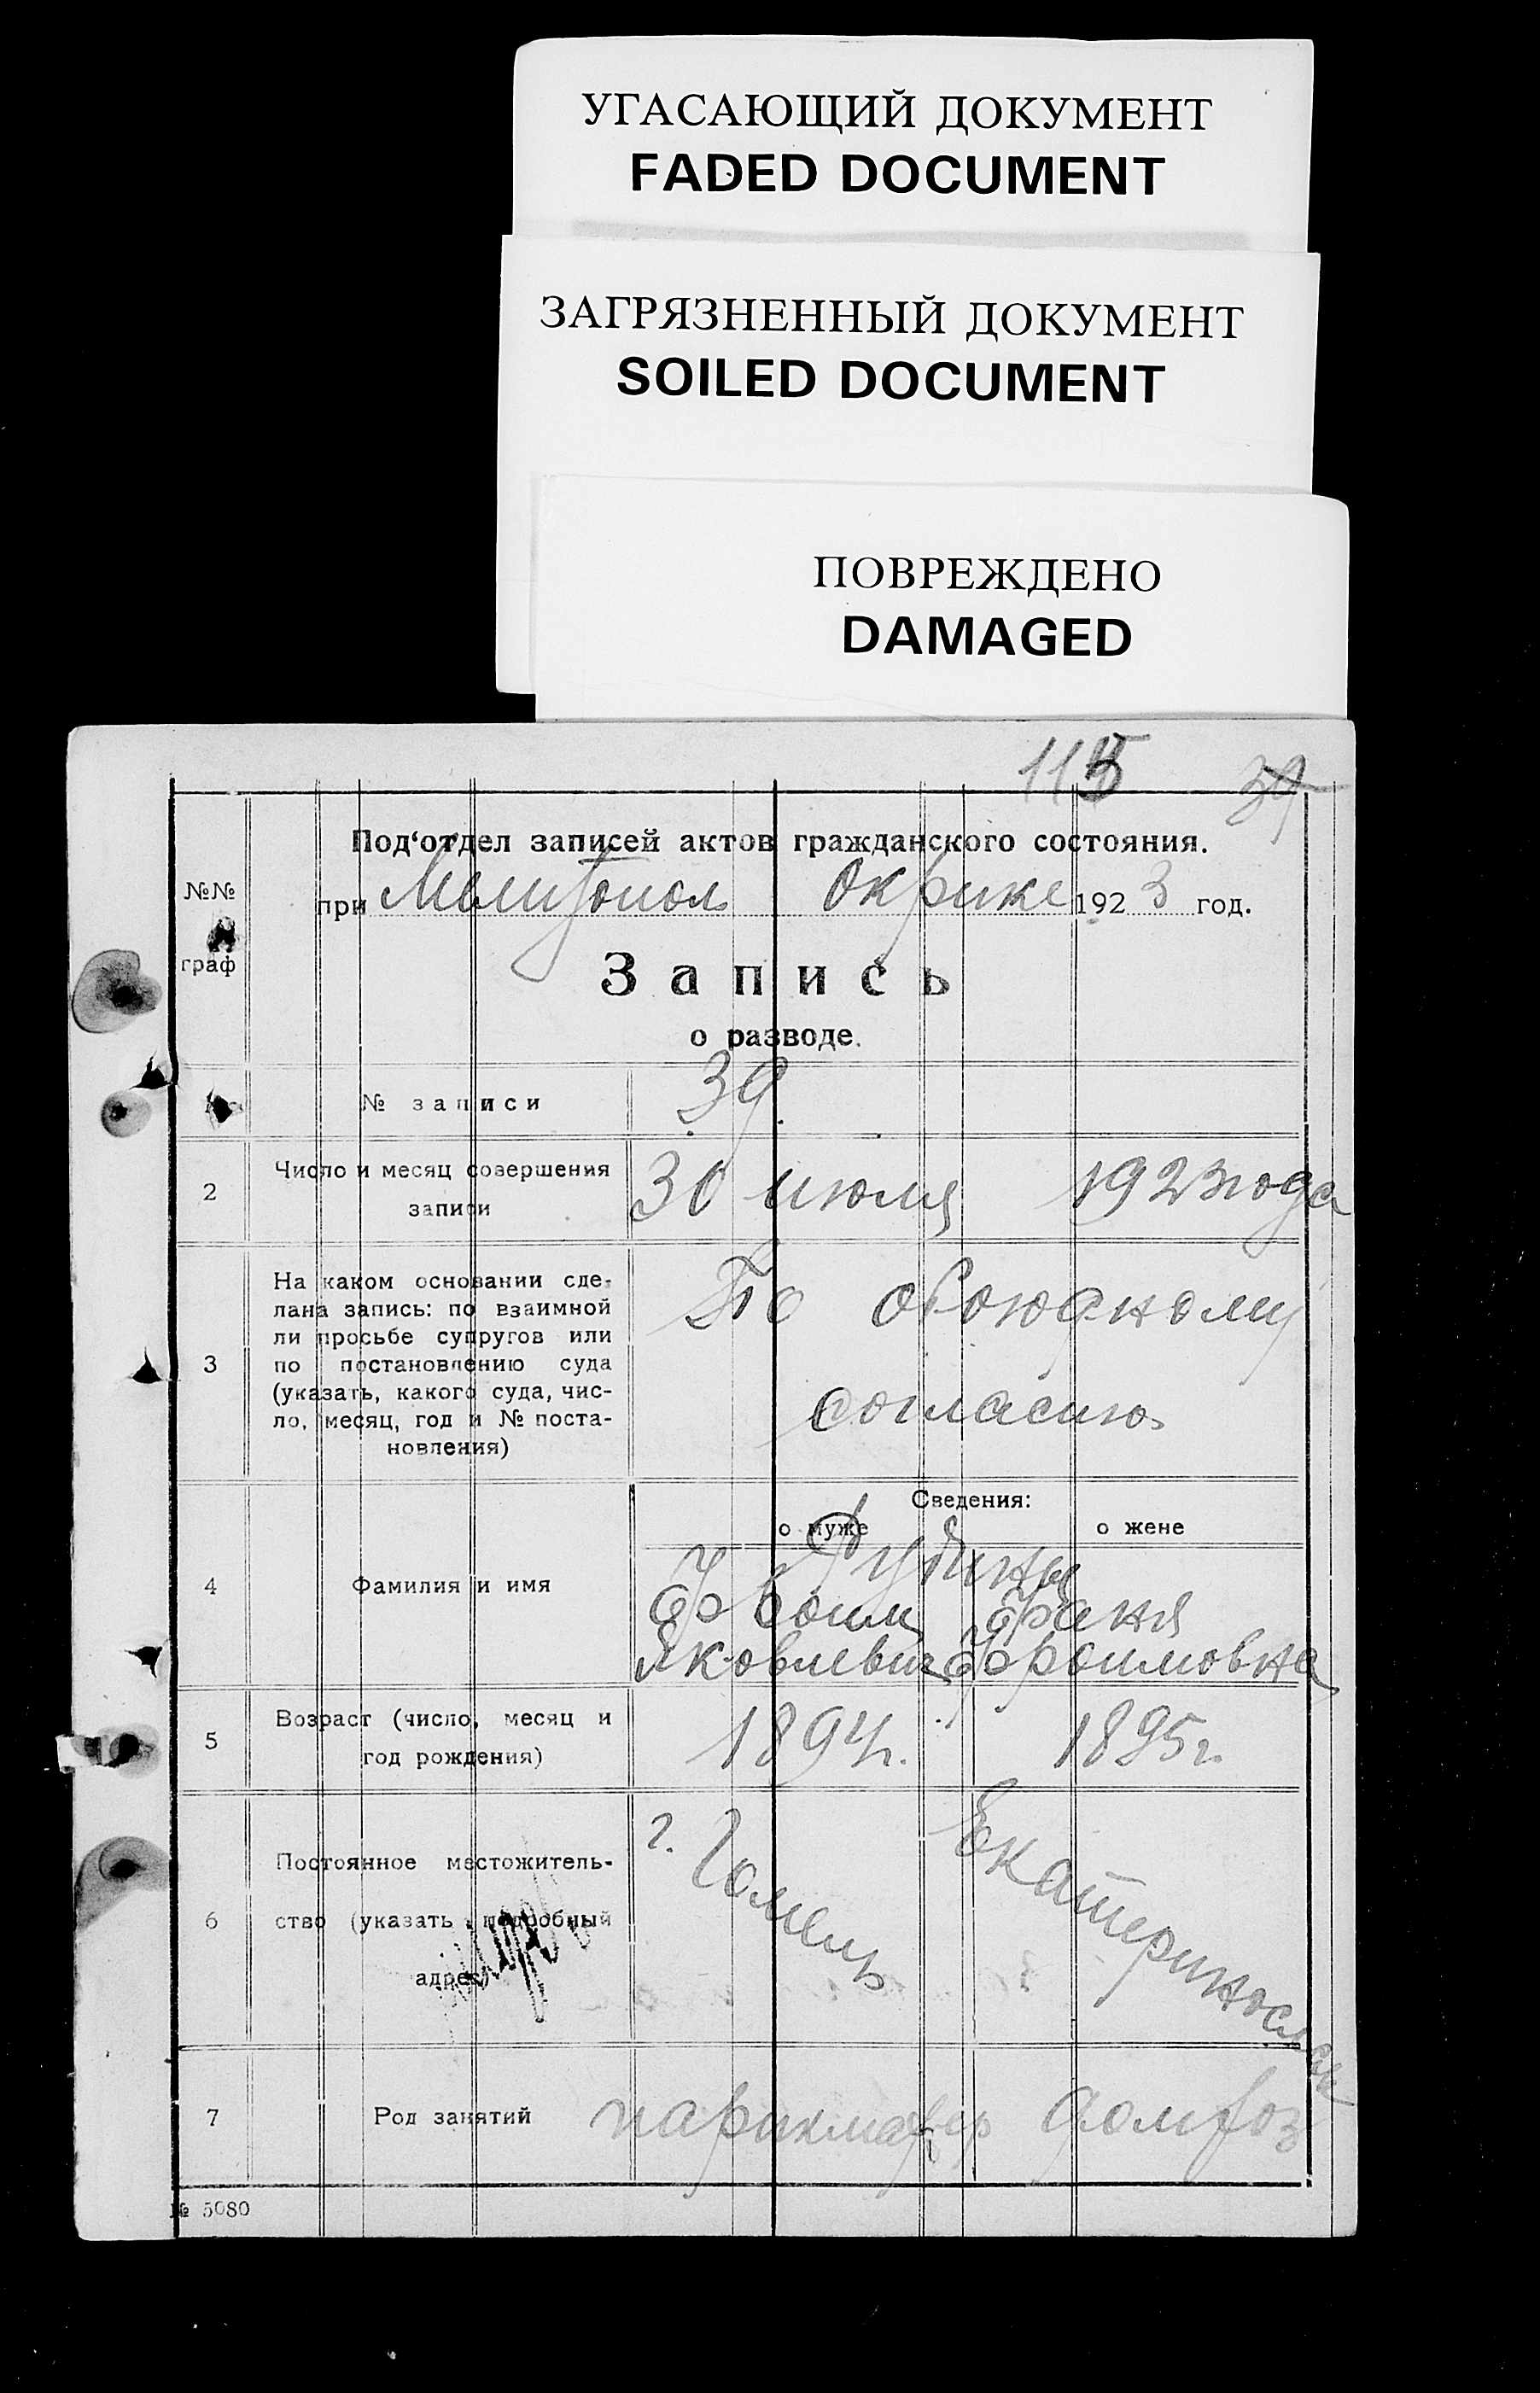 УГАСАЮЩИЙ ДОКУМЕНТ
FADED DOCUMENT
ЗАГРЯЗНЕННЫЙ ДОКУМЕНТ
SOILED DOCUMENT
ПОВРЕЖДЕНО
DAMAGED
115 39
Под‘отдел записей актов гражданского состояния.
№№
граф
при Мелитопол Окрике 1923 год.
Запись
о разводе.
№ записи 39
2 Число и месяц совершения записи
30 июля 1923 года
3 На каком основании сде-
лана запись: по взаимной
ли просьбе супругов или
по постановлению суда
(указать, какого суда, чис-
ло, месяц, год и № поста-
новления)
По обоюдному
согласию
Сведения:
о муже о жене
4 Фамилия и имя
Рубины
Фроим Фаня
Яковлевич Фроимовна
5 Возраст (число, месяц и
год рождения)
1894г. 1895г.
6 Постоянное местожитель-
ство (указать подробный
адрес)
г. Гомель Екатеринославск
7 Род занятий парикмахер домхоз
№ 5080